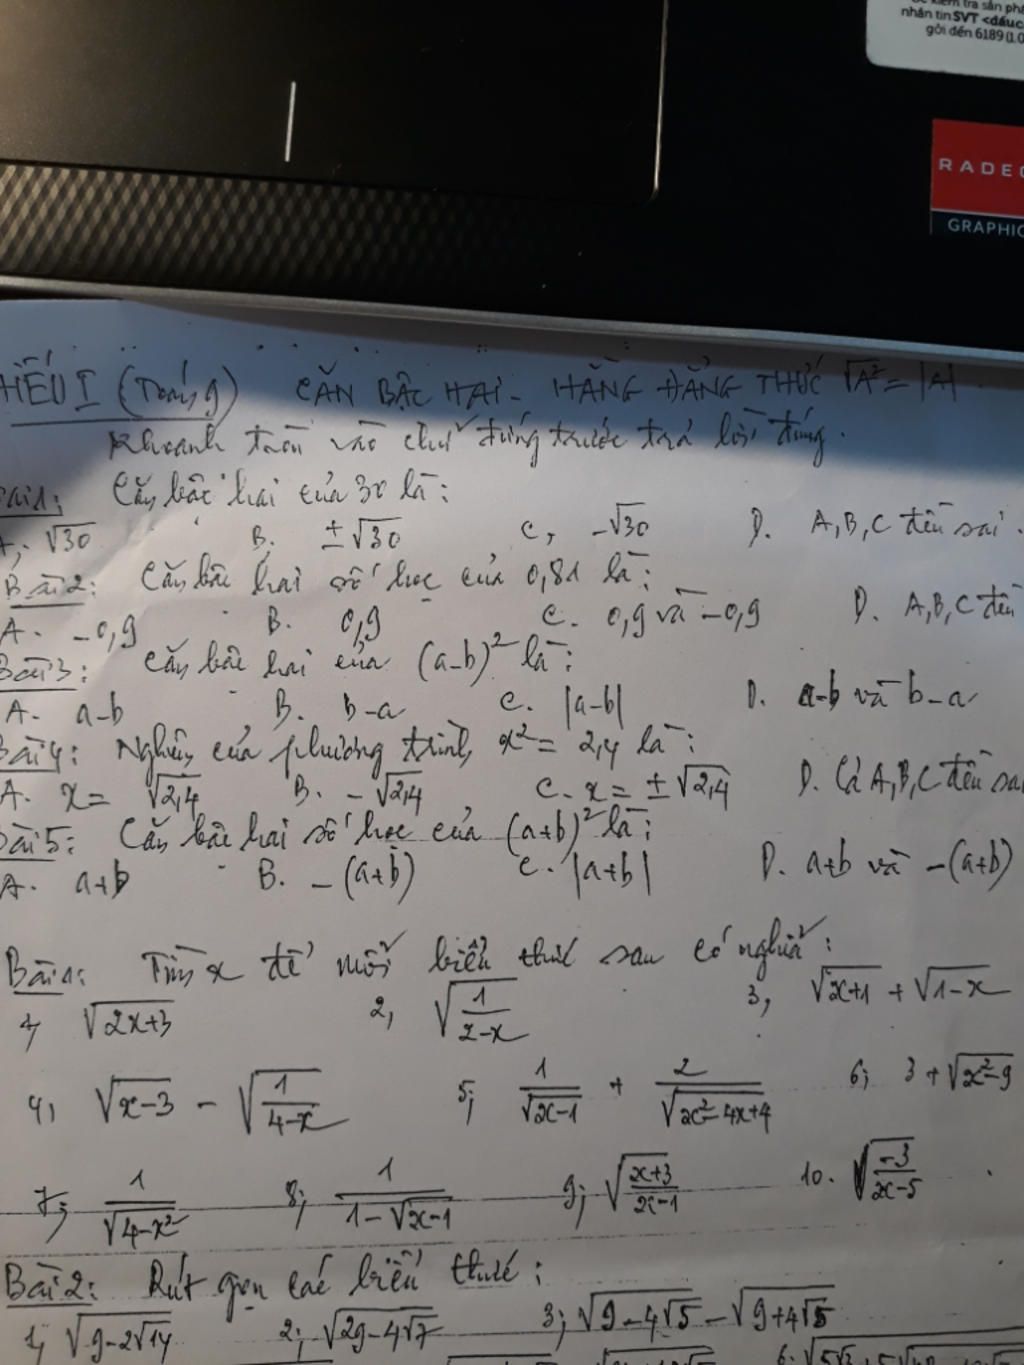 kiểm tra sản phẩ
nhắn tin SVT <dấu c
gởi đến 6189 (1.0
RADEO
GRAPHIC
HIẾU I (Toán 9) CĂN BẬC HAI - HẰNG ĐẲNG THỨC √A² = |A|
Khoanh tròn vào chữ đứng trước trả lời đúng.
Bài 1: Căn bậc hai của 30 là:
A, √30 B. ±√30 C, -√30 D. A, B, C đều sai.
Bài 2: Căn bậc hai số học của 0,81 là:
A. -0,9 B. 0,9 C. 0,9 và -0,9 D. A, B, C đều
Bài 3: Căn bậc hai của (a-b)² là:
A. a-b B. b-a C. |a-b| D. a-b và b-a
Bài 4: Nghiệm của phương trình x² = 2,4 là:
A. x = √2,4 B. -√2,4 C. x = ±√2,4 D. Cả A, B, C đều sa
Bài 5: Căn bậc hai số học của (a+b)² là:
A. a+b B. -(a+b) C. |a+b| D. a+b và -(a+b)
Bài 1: Tìm x để mỗi biểu thức sau có nghĩa:
1, √(2x+3) 2, √(1/(2-x)) 3, √(x+1) + √(1-x)
4, √(x-3) - √(1/(4-x)) 5; 1/√(x-1) + 2/√(x²-4x+4) 6; 3 + √(x²-9)
7; 1/√(4-x²) 8; 1/(1-√(x-1)) 9; √((x+3)/(x-1)) 10. √(-3/(x-5))
Bài 2: Rút gọn các biểu thức:
1; √(9-2√14) 2; √(29-4√7) 3; √(9-4√5) - √(9+4√5)